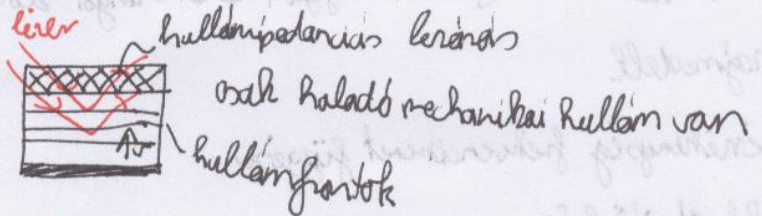 lézer
hullámimpedanciás lezárás
csak haladó mechanikai hullám van
hullámfrontok